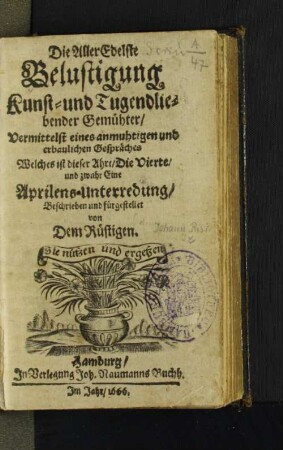 Die AllerEdelste
Belustigung
Kunst- und Tugendlie-
bender Gemühter/
Vermittelst eines anmuhtigen und
erbaulichen Gespräches
Welches ist dieser Ahrt/Die Vierte/
und zwahr Eine
Aprilens-Unterredung/
Beschrieben und fürgestellet
von
Dem Rüstigen.
Sie nützen und ergetzen
Hamburg/
In Verlegung Joh. Naumanns Buchh.
Im Jahr/1666.
1
47